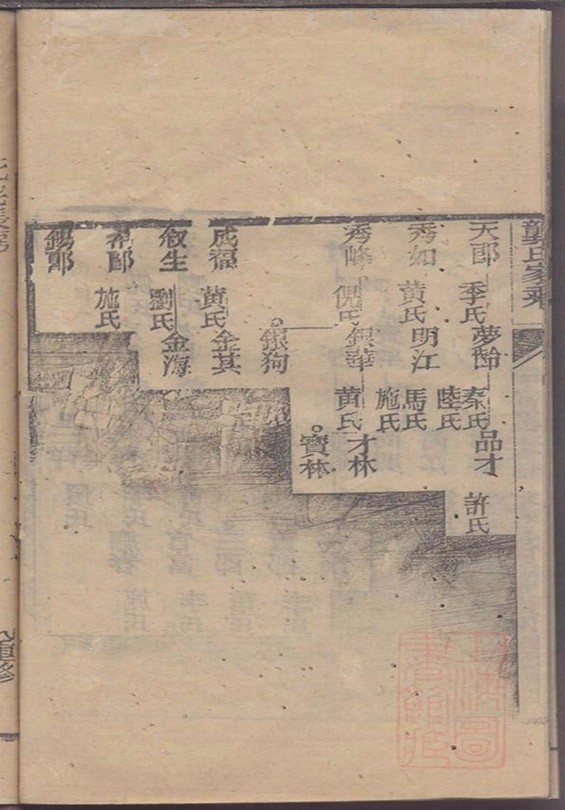 龔氏家乘
天郎 季氏 夢齡 秦氏 陸氏 品才 許氏
秀如 黃氏 明江 馬氏 施氏
秀峰 倪氏 銀華 黃氏 才林
寶林
銀狗
成福 黃氏 金其
叙生 劉氏 金海
施氏
錫郎
上海圖書館藏